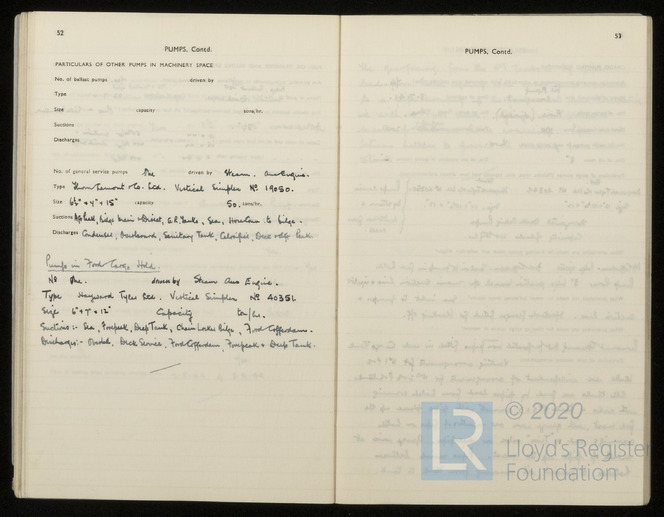 52
PUMPS, Contd.
PARTICULARS OF OTHER PUMPS IN MACHINERY SPACE
No. of ballast pumps driven by
Type
Size capacity tons/hr.
Suctions
Discharges
No. of general service pumps One driven by Steam. Engine.
Type Thom Lamont & Co. Ltd. Vertical Simplex No 19050.
Size capacity 50. tons/hr.
Suctions Bilge Main & Direct, Sea, to bilge.
Discharges Condenser, Overboard, Sanitary Tank, Calorifier, Deck
Pumps in Ford Cargo Hold.
No One. driven by Steam Engine.
Type Hayward Tyler Ltd. Vertical Simplex No 40351
Size 6" + 7" + 12" Capacity ton/hr.
Suctions :- Sea, Forepeak, Deep Tank, Chain Locker Bilge, Ford Cofferdam.
Discharges:- Overbd, Deck Service, Ford Cofferdam, Forepeak & Deep Tank.
53
PUMPS, Contd.
LR
© 2020
Lloyd's Register
Foundation